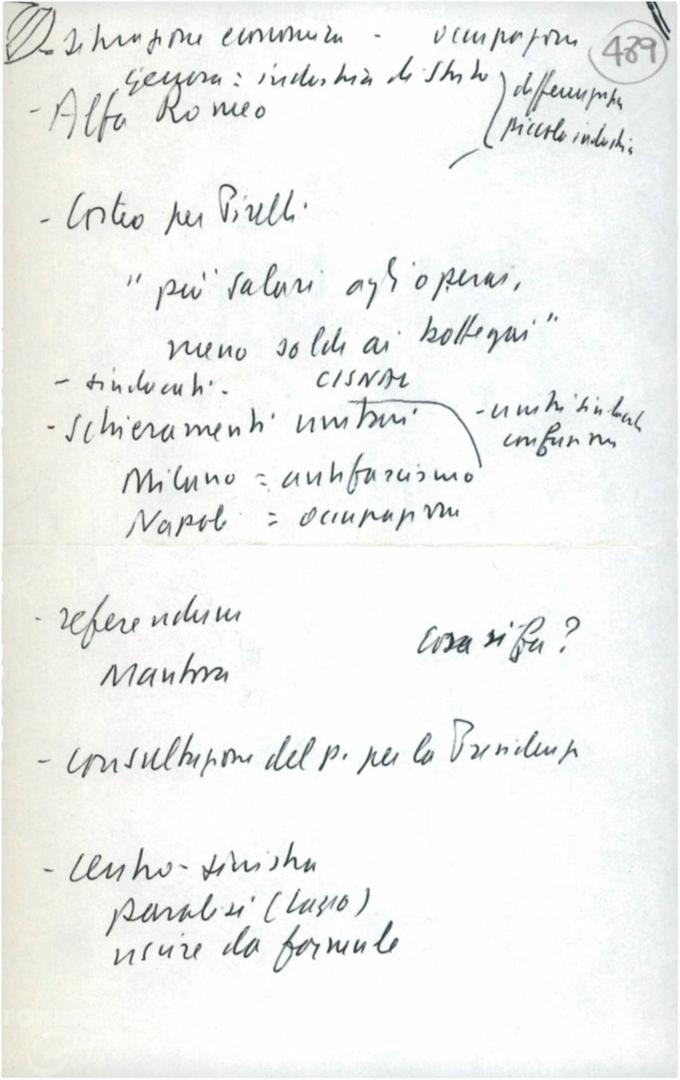 - situazione economica - occupazione
489
Genova: industria di Stato
differenza
piccola industria
- Alfa Romeo
- Corteo per Pirelli
"più salari agli operai,
meno soldi ai bottegai"
- sindacati - CISNAL
- schieramenti unitari
- unità sindacale
confusione
Milano = antifascismo
Napoli = occupazione
- referendum
cosa si fa?
Mantova
- consultazione del p. per la Presidenza
- centro-sinistra
paralisi (Lazio)
uscire da formule